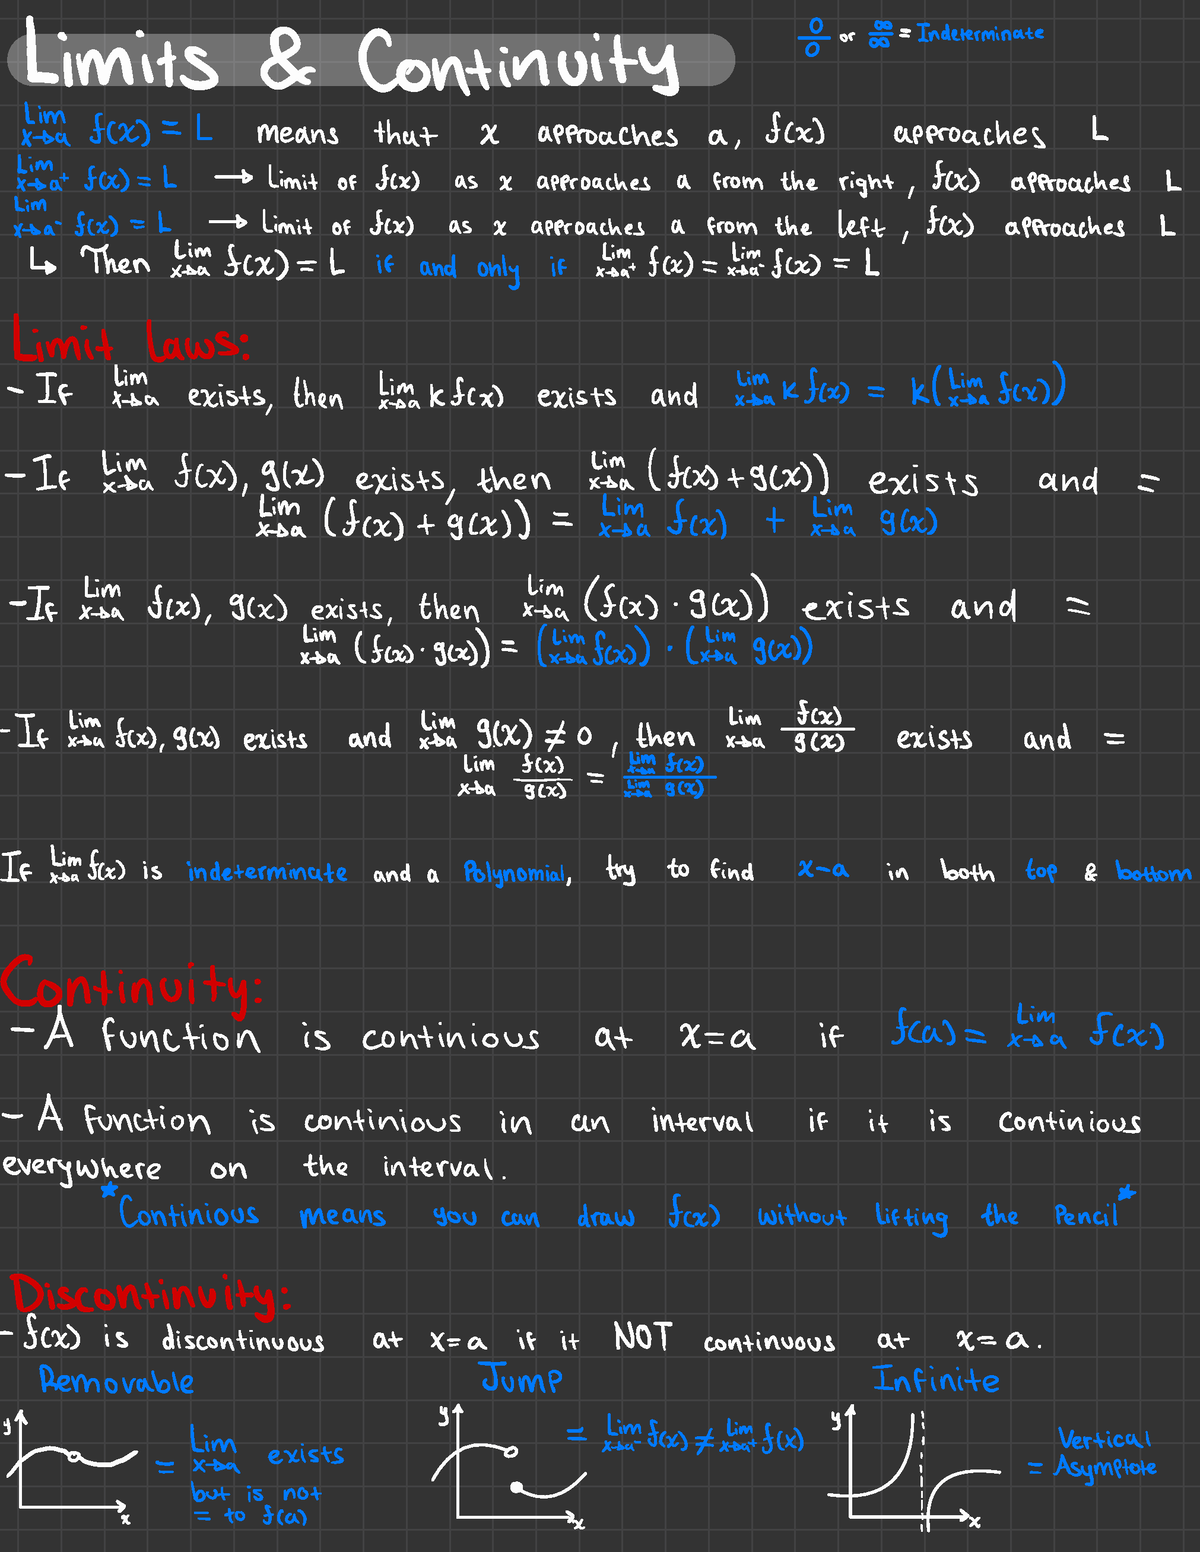 Limits & Continuity
0/0 or ∞/∞ = Indeterminate
Lim x→a f(x) = L means that x approaches a, f(x) approaches L
Lim x→a⁺ f(x) = L → Limit of f(x) as x approaches a from the right, f(x) approaches L
Lim x→a⁻ f(x) = L → Limit of f(x) as x approaches a from the left, f(x) approaches L
↳ Then Lim x→a f(x) = L if and only if Lim x→a⁺ f(x) = Lim x→a⁻ f(x) = L
Limit Laws:
- If Lim x→a exists, then Lim x→a k f(x) exists and Lim x→a k f(x) = k(Lim x→a f(x))
- If Lim x→a f(x), g(x) exists, then Lim x→a (f(x) + g(x)) exists and =
Lim x→a (f(x) + g(x)) = Lim x→a f(x) + Lim x→a g(x)
- If Lim x→a f(x), g(x) exists, then Lim x→a (f(x) · g(x)) exists and =
Lim x→a (f(x) · g(x)) = (Lim x→a f(x)) · (Lim x→a g(x))
- If Lim x→a f(x), g(x) exists and Lim x→a g(x) ≠ 0, then Lim x→a f(x)/g(x) exists and =
Lim x→a f(x)/g(x) = Lim x→a f(x)/Lim x→a g(x)
If Lim x→a f(x) is indeterminate and a Polynomial, try to find x-a in both top & bottom
Continuity:
- A function is continious at x=a if f(a) = Lim x→a f(x)
- A function is continious in an interval if it is continious
everywhere on the interval.
*Continious means you can draw f(x) without lifting the Pencil*
Discontinuity:
- f(x) is discontinuous at x=a if it NOT continuous at x=a.
Removable
y
x
= Lim x→a exists
but is not
= to f(a)
Jump
y
x
= Lim x→a⁻ f(x) ≠ Lim x→a⁺ f(x)
Infinite
y
x
Vertical
= Asymptote